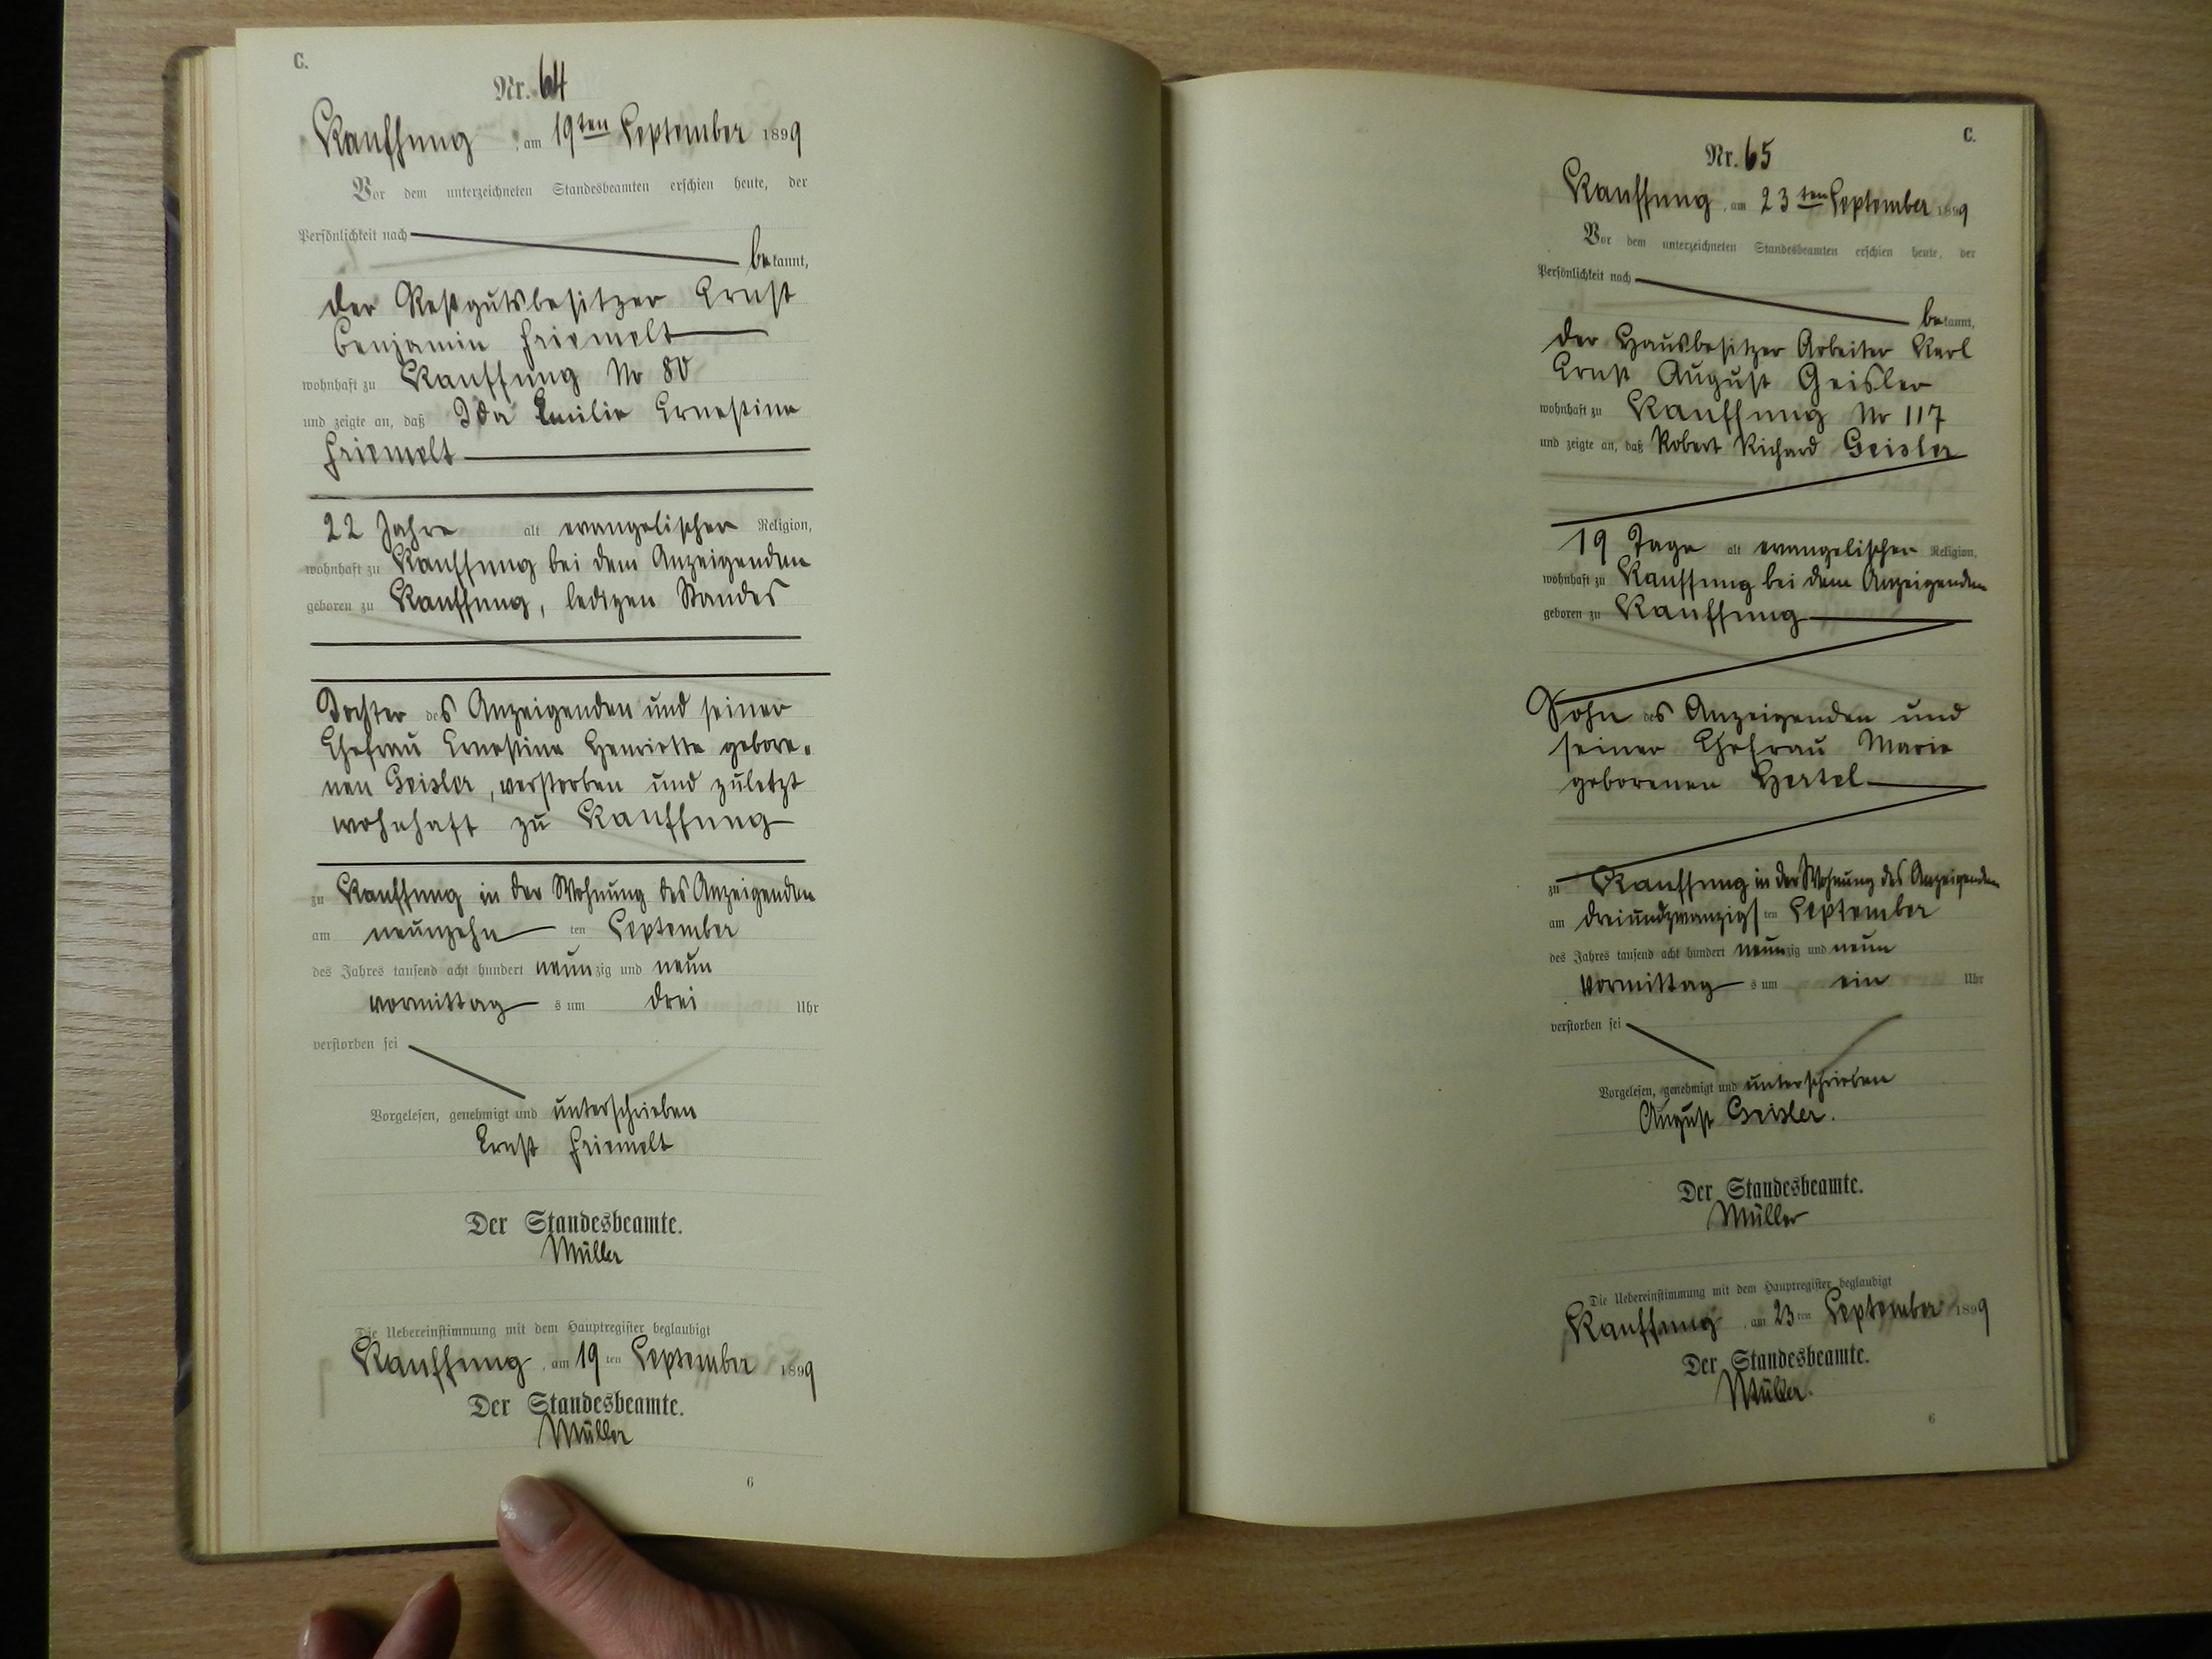 C.
Nr. 64
Kauffung, am 19ten September 1899
Vor dem unterzeichneten Standesbeamten erschien heute, der
Persönlichkeit nach
bekannt,
der Restgutsbesitzer Ernst
Benjamin Friemelt
wohnhaft zu Kauffung Nr 80
und zeigte an, daß Ida Emilie Ernestine
Friemelt
22 Jahre alt evangelischer Religion,
wohnhaft zu Kauffung bei dem Anzeigenden
geboren zu Kauffung, ledigen Standes
Tochter des Anzeigenden und seiner
Ehefrau Ernestine Henriette gebore-
nen Geisler, verstorben und zuletzt
wohnhaft zu Kauffung
zu Kauffung in der Wohnung des Anzeigenden
am neunzehnten September
des Jahres tausend acht hundert neunzig und neun
vormittags um drei Uhr
verstorben sei
Vorgelesen, genehmigt und unterschrieben
Ernst Friemelt
Der Standesbeamte.
Müller
Die Uebereinstimmung mit dem Hauptregister beglaubigt
Kauffung, am 19ten September 1899
Der Standesbeamte.
Müller
6
C.
Nr. 65
Kauffung, am 23ten September 1899
Vor dem unterzeichneten Standesbeamten erschien heute, der
Persönlichkeit nach
bekannt,
der Hausbesitzer Arbeiter Karl
Ernst August Geisler
wohnhaft zu Kauffung Nr 117
und zeigte an, daß Robert Richard Geisler
19 Tage alt evangelischer Religion,
wohnhaft zu Kauffung bei dem Anzeigenden
geboren zu Kauffung
Sohn des Anzeigenden und
seiner Ehefrau Marie
geborenen Hertel
zu Kauffung in der Wohnung des Anzeigenden
am dreiundzwanzigsten September
des Jahres tausend acht hundert neunzig und neun
vormittags um ein Uhr
verstorben sei
Vorgelesen, genehmigt und unterschrieben
August Geisler.
Der Standesbeamte.
Müller
Die Uebereinstimmung mit dem Hauptregister beglaubigt
Kauffung, am 23ten September 1899
Der Standesbeamte.
Müller.
6